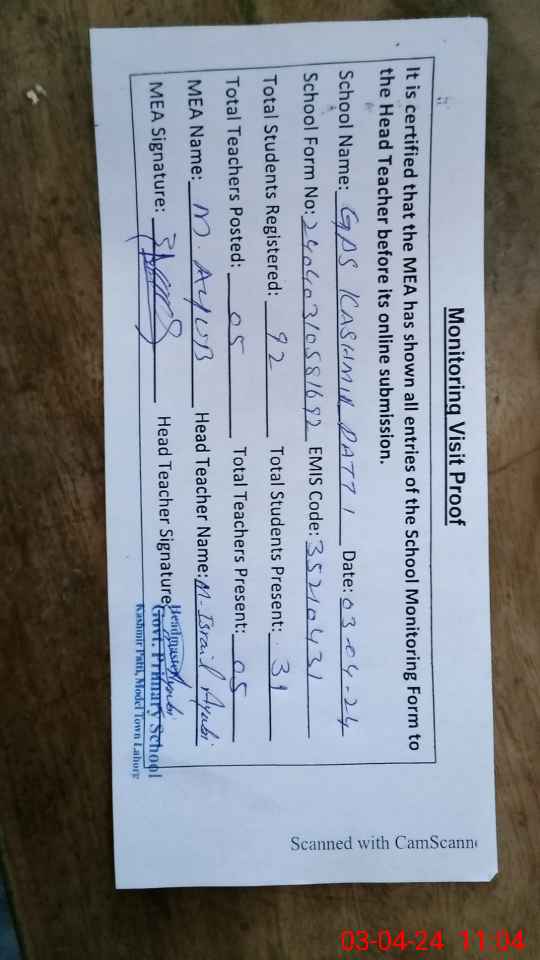 Monitoring Visit Proof
It is certified that the MEA has shown all entries of the School Monitoring Form to
the Head Teacher before its online submission.
School Name: GPS KASHMIR PATTI Date: 03-04-24
School Form No: 24040310581692 EMIS Code: 35210431
Total Students Registered: 92 Total Students Present: 31
Total Teachers Posted: 05 Total Teachers Present: 05
MEA Name: M. AYUB Head Teacher Name: M. Israil Ayubi
MEA Signature: Head Teacher Signature
Headmaster
Govt. Primary School
Kashmir Patti, Model Town Lahore
Scanned with CamScann
03-04-24 11:04